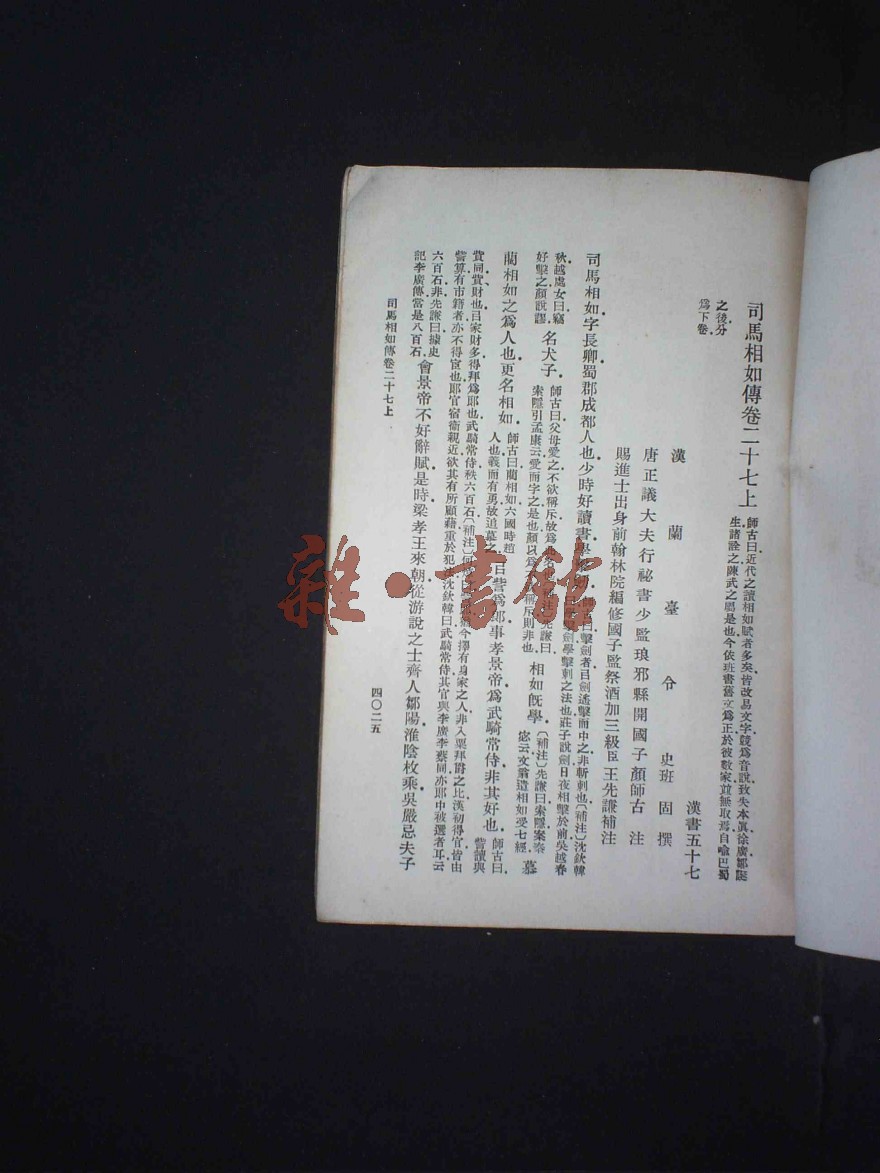 司馬相如傳卷二十七上 師古曰近代之讀相如賦者多矣皆改易文字競爲音說致失本眞徐廣鄒誕
生諸詮之陳武之屬是也今依班書舊文爲正於彼數家竝無取焉自喻巴蜀
之後分
爲下卷
漢書五十七
漢蘭臺令史班固撰
唐正議大夫行祕書少監琅邪縣開國子顏師古注
賜進士出身前翰林院編修國子監祭酒加三級臣王先謙補注
司馬相如字長卿蜀郡成都人也少時好讀書學擊劍 曰擊劍者㠯劍遙擊而中之非斬刺也〔補注〕沈欽韓
劍學擊刺之法也莊子說劍日夜相擊於前吳越春
秋越處女曰竊
好擊之顏說謬 名犬子 師古曰父母愛之不欲稱斥故爲此名 先謙曰
索隱引孟康云愛而字之是也顏以爲 稱斥則非也 相如旣學 〔補注〕先謙曰索隱案秦
宓云文翁遣相如受七經 慕
藺相如之爲人也更名相如 師古曰藺相如六國時趙
人也義而有勇故追慕之 㠯訾爲郎事孝景帝爲武騎常侍非其好也 師古曰
訾讀與
貲同貲財也㠯家財多得拜爲郎也武騎常侍秩六百石〔補注〕何焯曰 今擇有身家之人非入粟拜爵之比漢初得官皆由
訾算有市籍者亦不得宦也郎官宿衞親近欲其有所顧藉重於犯法沈欽韓曰武騎常侍其官與李廣李蔡同亦郎中被選者耳云
六百石非先謙曰據史
記李廣傳當是八百石 會景帝不好辭賦是時梁孝王來朝從游說之士齊人鄒陽淮陰枚乘吳嚴忌夫子
司馬相如傳卷二十七上
四〇二五
雜·書館